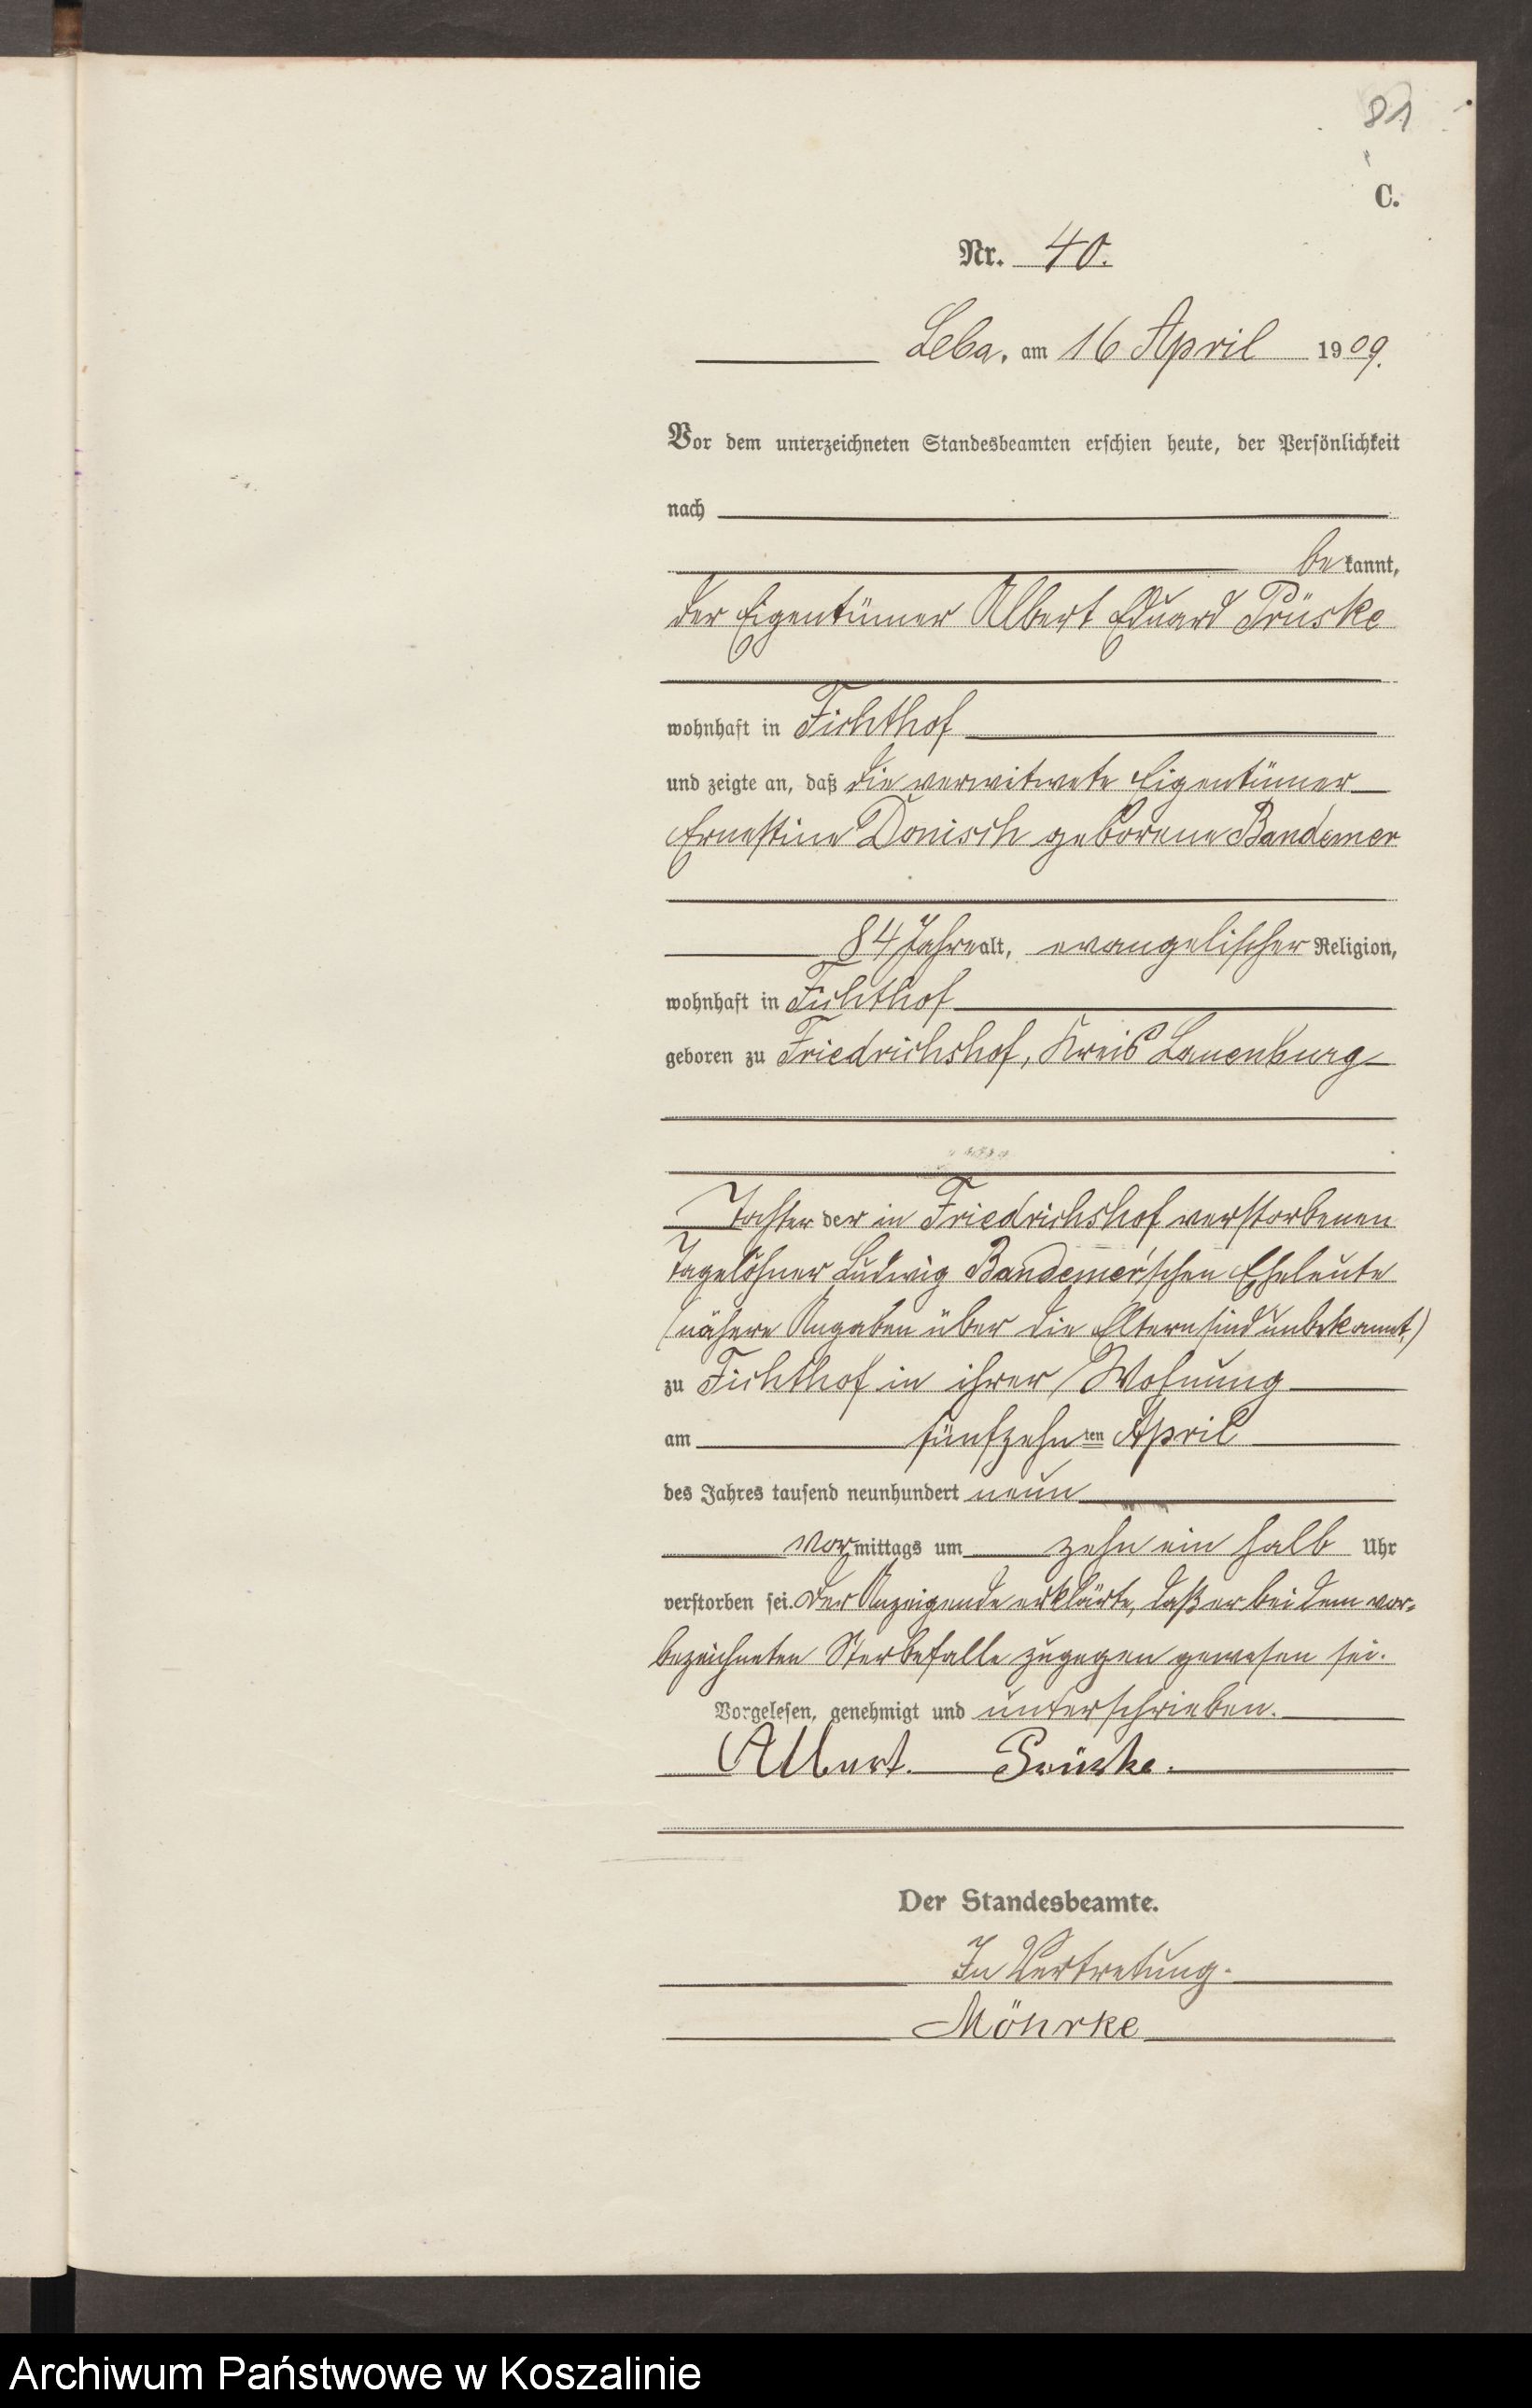 81
C.
Nr. 40.
Leba, am 16 April 1909.
Vor dem unterzeichneten Standesbeamten erschien heute, der Persönlichkeit
nach
bekannt,
der Eigentümer Albert Eduard Prüske
wohnhaft in Fichthof
und zeigte an, daß die verwitwete Eigentümer
Ernestine Donisch geborene Bandemer
84 Jahre alt, evangelischer Religion,
wohnhaft in Fichthof
geboren zu Friedrichshof, Kreis Lauenburg
Tochter der in Friedrichshof verstorbenen
Tagelöhner Ludwig Bandemer'schen Eheleute
(nähere Angaben über die Eltern sind unbekannt)
zu Fichthof in ihrer Wohnung
am fünfzehnten April
des Jahres tausend neunhundert neun
vormittags um zehn ein halb Uhr
verstorben sei. Der Anzeigende erklärte, daß er bei dem vor-
bezeichneten Sterbefalle zugegen gewesen sei.
Vorgelesen, genehmigt und unterschrieben.
Albert. Prüske.
Der Standesbeamte.
In Vertretung.
Möhrke
Archiwum Państwowe w Koszalinie